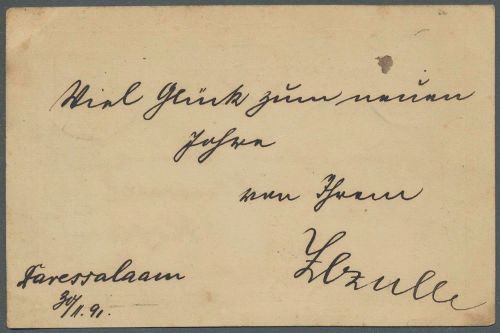 Viel Glück zum neuen
Jahre
von Ihrem
Daressalaam
30/11.91.